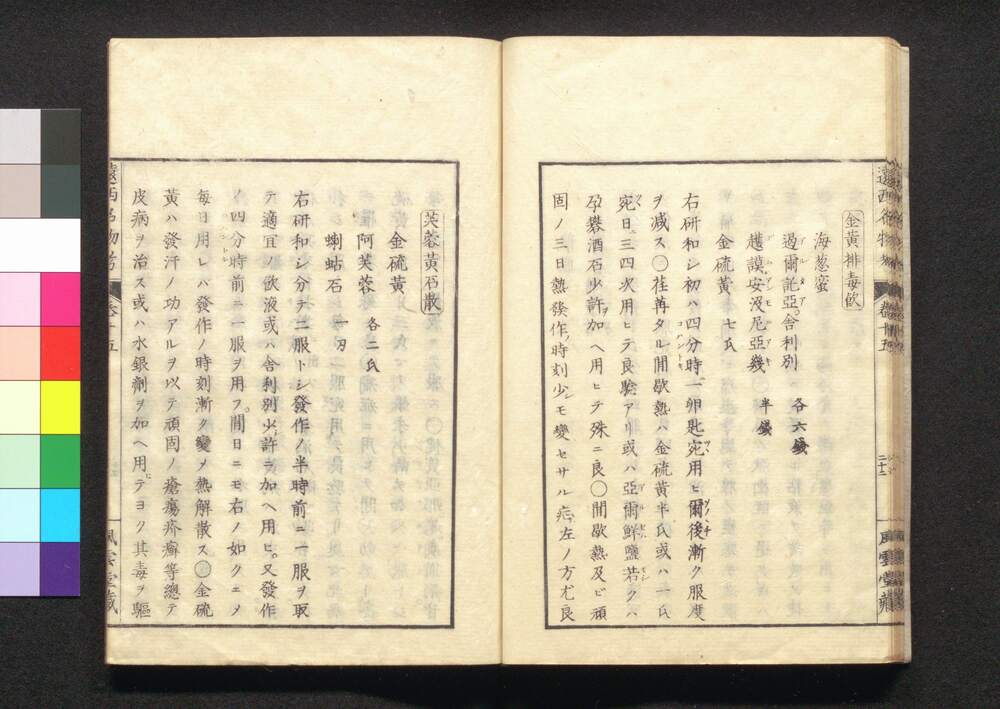 金黄排毒飲
海葱蜜
過爾託亞舎利別 各六錢
護謨安没尼亞幾 半錢
金硫黄 七氏
右研和シ初ハ四分時ニ一卵匙宛用ヒ爾後漸ク服度
ヲ減ス〇荏苒タル間歇熱ハ金硫黄半氏或ハ一氏
宛日ニ三四次用ヒテ良驗アリ或ハ亞爾鮮鹽若クハ
孕礬酒石少許ヲ加ヘ用ヒテ殊ニ良〇間歇熱及ビ頑
固ノ三日熱發作ノ時刻少シモ變セサル症左ノ方尤良
遠西名物考 卷十五 二十二 風雲堂藏
芙蓉黄石散
金硫黄
阿芙蓉 各二氏
蝲蛄石 一刃
右研和シ分テ二服トシ發作ノ半時前ニ一服ヲ取
テ適宜ノ飲液或ハ舎利別少許ニ加ヘ用ヒ又發作
ノ四分時前ニ一服ヲ用フ間日ニモ右ノ如クニメ
毎日用レハ發作ノ時刻漸ク變メ熱解散ス〇金硫
黄ハ發汗ノ功アルヲ以テ頑固ノ瘡瘍疥癬等總テ
皮病ヲ治ス或ハ水銀劑ヲ加ヘ用ヒテヨク其毒ヲ驅
遠西名物考 卷十五 風雲堂藏